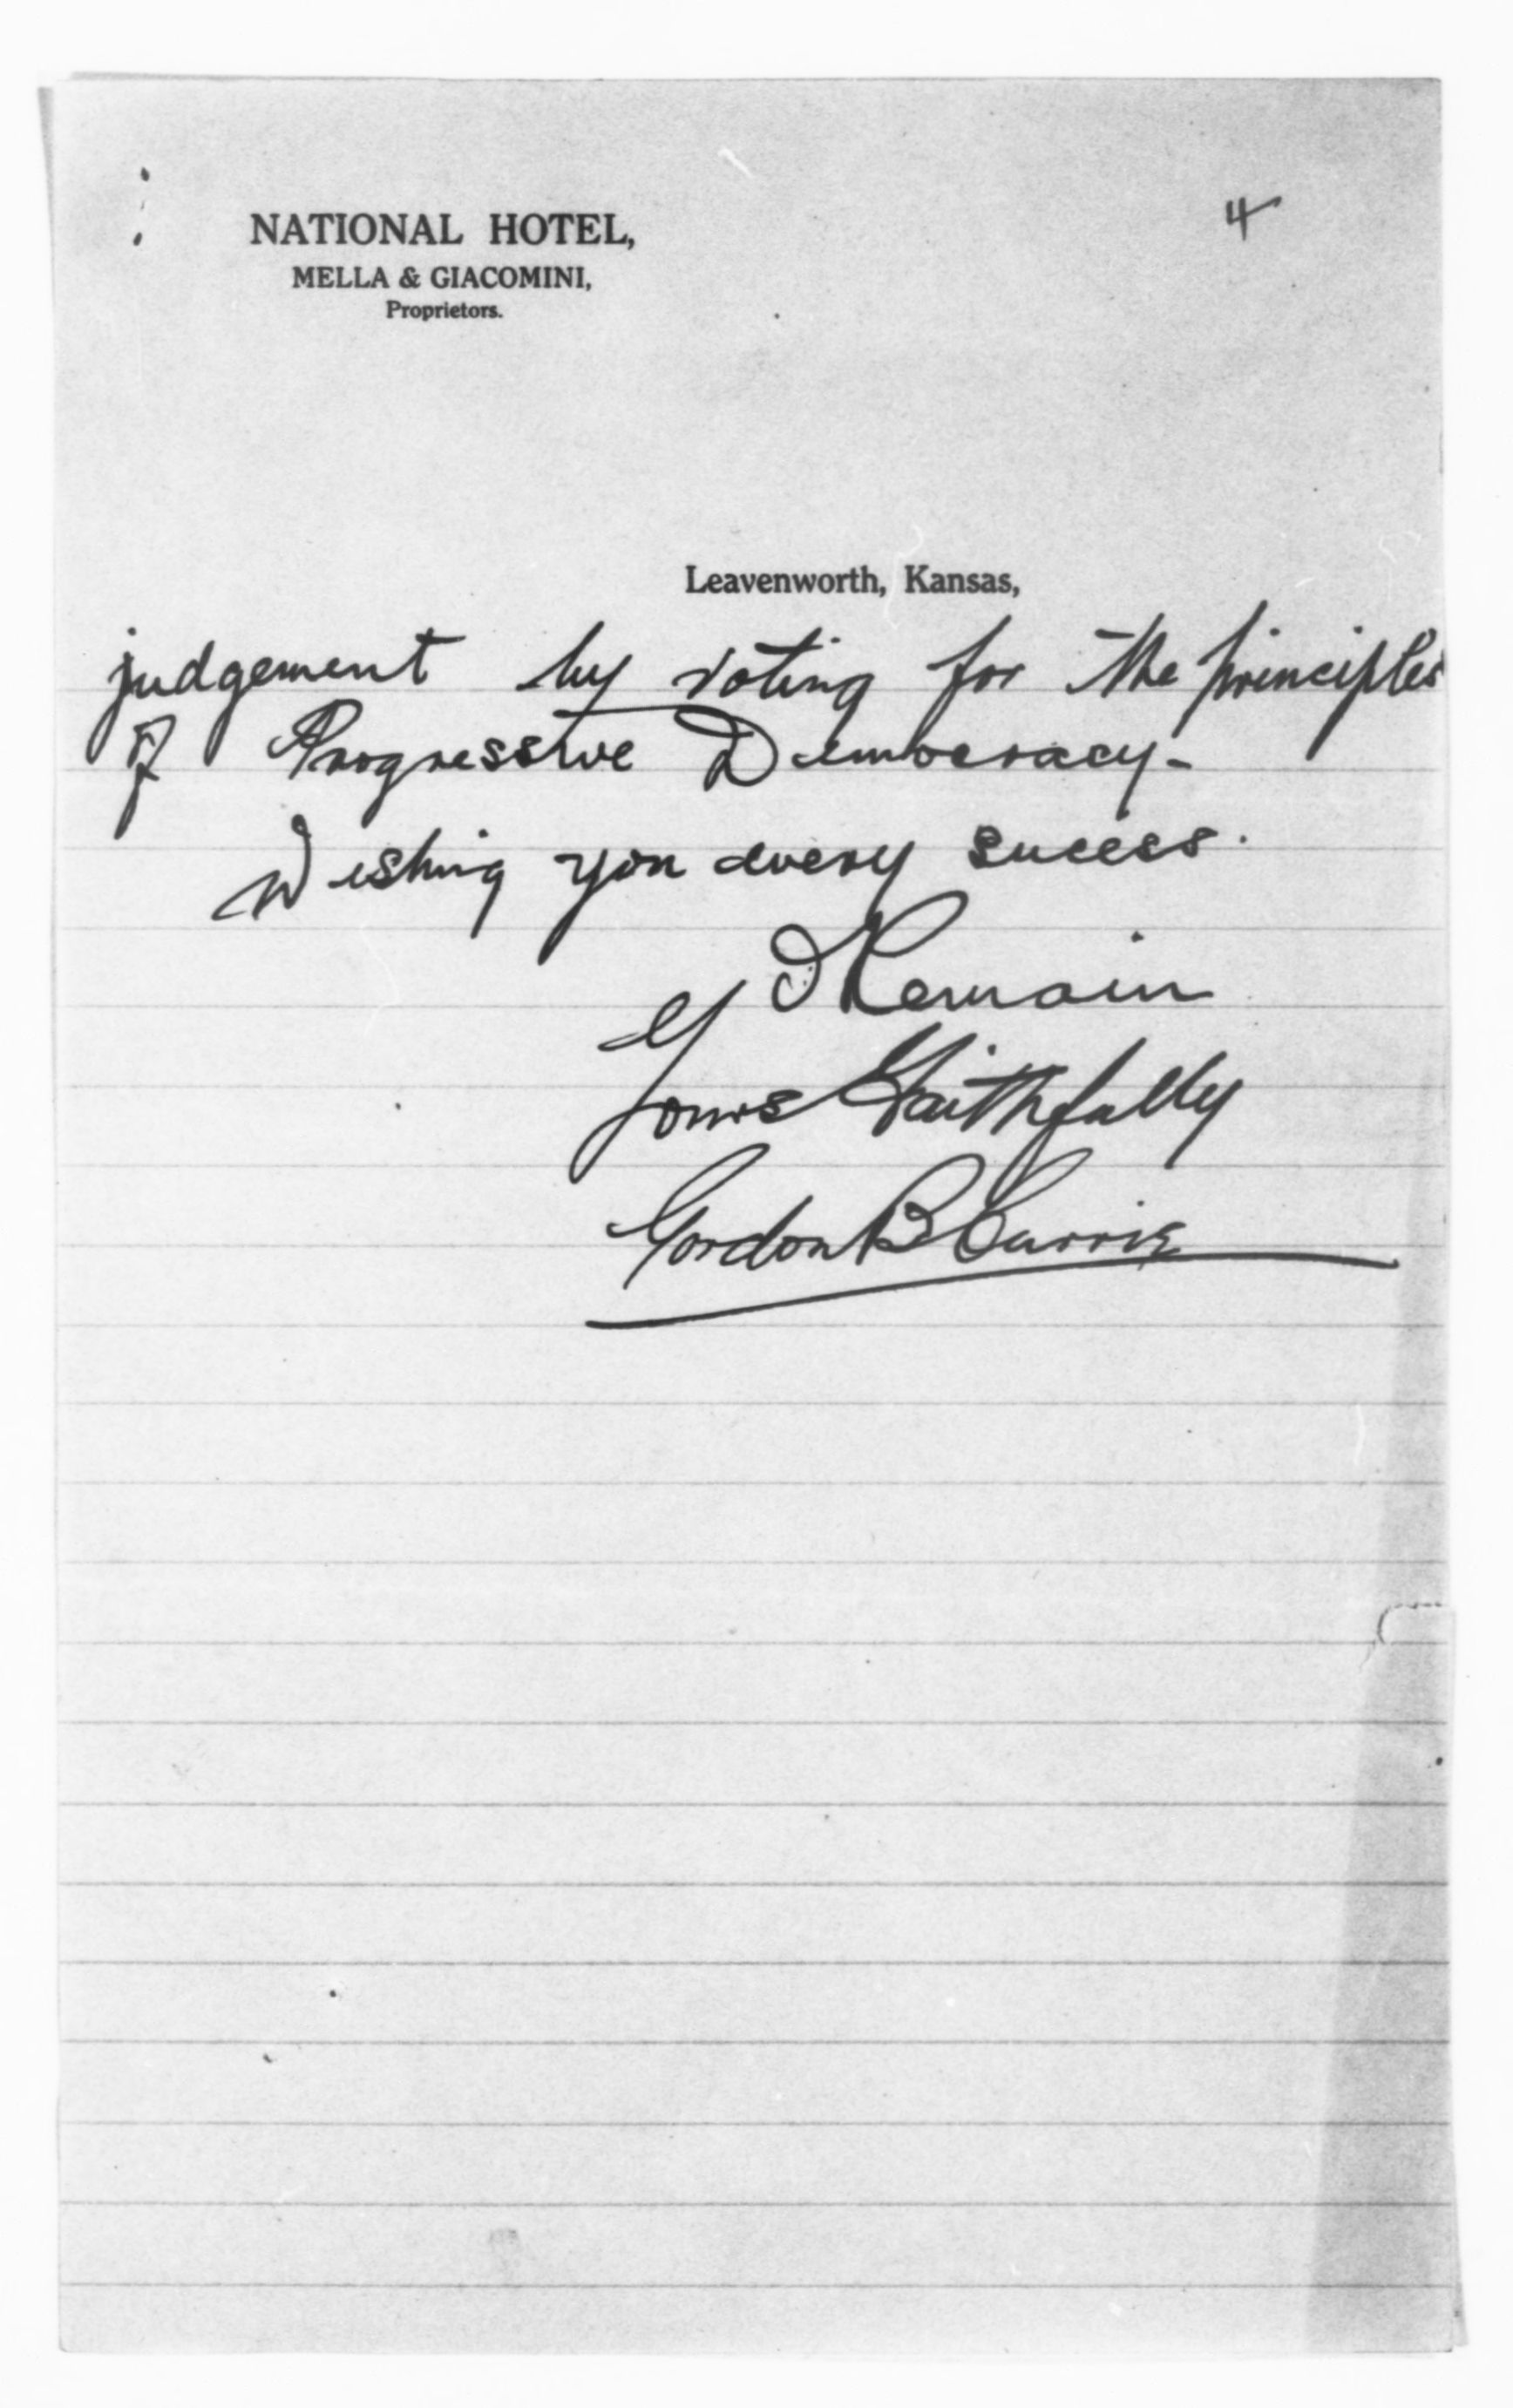 4
NATIONAL HOTEL,
MELLA & GIACOMINI,
Proprietors.
Leavenworth, Kansas,
judgement by voting for the principles
of Progressive Democracy-
Wishing you every sucess.
I Remain
Yours Faithfully
Gordon B Currie